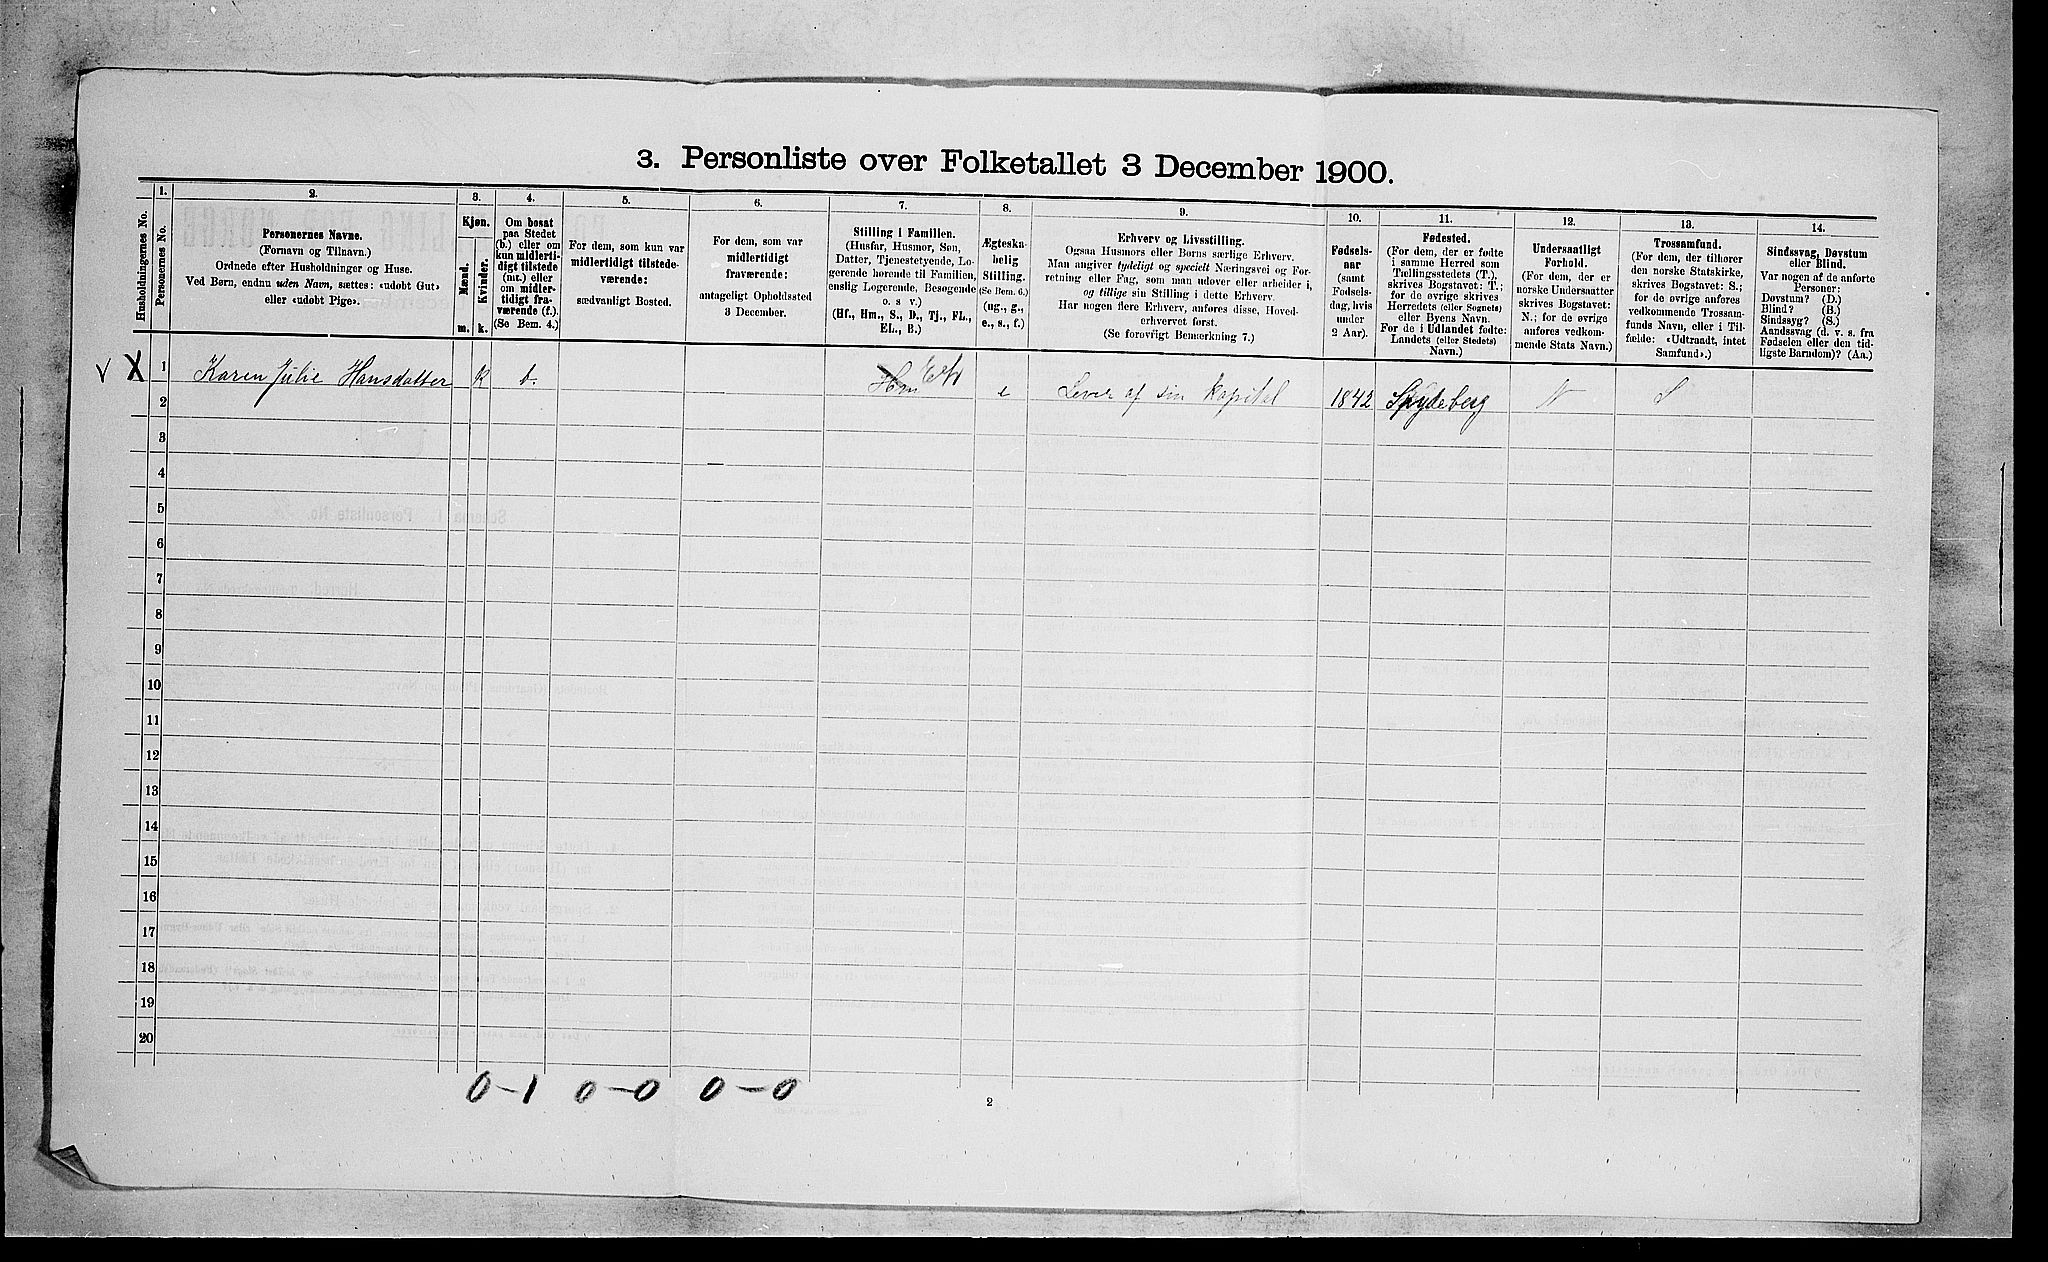 3. Personliste over Folketallet 3 December 1900.
Husholdningernes No.
1.
Personernes No.
2.
Personernes Navne.
(Fornavn og Tilnavn.)
Ordnede efter Husholdninger og Huse.
Ved Børn, endnu uden Navn, sættes: «udobt Gut»
eller «udobt Pige».
3.
Kjøn.
Mænd.
Kvinder.
m.
k.
4.
Om bosat
paa Stedet
(b.) eller om
kun midlerti-
digt tilstede
(mt.) eller
om midler-
tidigt fra-
værende (f.).
(Se Bem. 4.)
5.
For dem, som kun var
midlertidigt tilstede-
værende:
sædvanligt Bosted.
6.
For dem, som var
midlertidigt
fraværende:
antageligt Opholdssted
3 December.
7.
Stilling i Familien.
(Husfar, Husmor, Søn,
Datter, Tjenestetyende, Lo-
gerende hørende til Familien,
enslig Logerende, Besøgende
o. s v.)
(Hf., Hm., S., D., Tj., FL.,
EL., B.)
8.
Ægteska-
belig
Stilling.
(Se Bem. 6.)
(ug., g.,
e., s., f.)
9.
Erhverv og Livsstilling.
Ogsaa Husmors eller Børns særlige Erhverv.
Man angiver tydeligt og specielt Næringsvei og For-
retning eller Fag, som man udover eller arbeider i,
og tillige sin Stilling i dette Erhverv.
Har nogen flere Erhverv, anføres disse, Hoved-
erhvervet først.
(Se forøvrigt Bemærkning 7.)
10.
Fødsels-
aar
(samt
Fødsels-
dag, hvis
under
2 Aar).
11.
Fødested.
(For dem, der er fødte
i samme Herred som
Tællingsstedets (T.),
skrives Bogstavet: T.;
for de øvrige skrives
Herredets (eller Sognets)
eller Byens Navn.
For de i Udlandet fødte:
Landets (eller Stedets)
Navn.)
12.
Undersaatligt
Forhold.
(For dem, der er
norske Undersaatter
skrives Bogstavet:
N.; for de øvrige
anføres vedkom-
mende Stats Navn.)
13.
Trossamfund.
(For dem, der tilhører
den norske Statskirke,
skrives Bogstavet: S.;
for de øvrige anføres
vedkommende Trossam-
funds Navn, eller i Til-
fælde: «Udtraadt, intet
Samfund».)
14.
Sindssvag, Døvstum
eller Blind.
Var nogen af de anførte
Personer:
Døvstum? (D.)
Blind? (B.)
Sindssyg? (S.)
Aandssvag (d. v. s. fra
Fødselen eller den tid-
ligste Barndom)? (Aa.)
√ X 1 Karen Julie Hansdatter k b. Hm e Lever af sin kapital 1842 Spydeberg N S
2
3
4
5
6
7
8
9
10
11
12
13
14
15
16
17
18
19
20
0-1 0-0 0-0
2